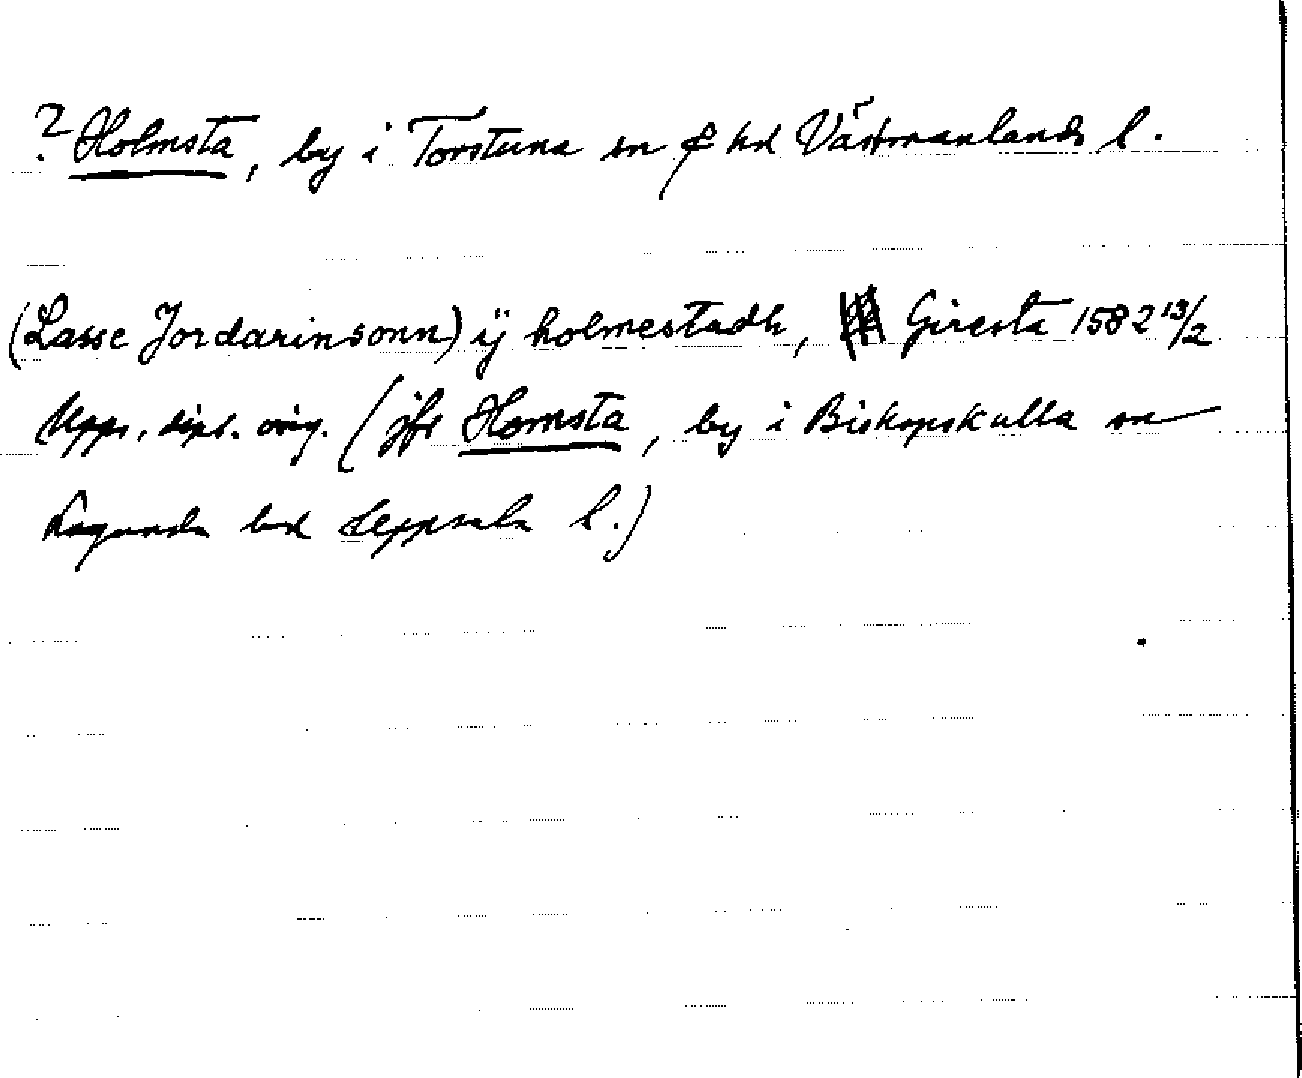 ? Holmsta, by i Torstuna sn & hd Västmanlands l.
(Lasse Jordarinsonn) ÿ holmestadh, Giresta 1582 13/2
Upps. dipl. orig. (jfr Homsta, by i Biskopskulla sn
Lagunda hd Uppsala l.)